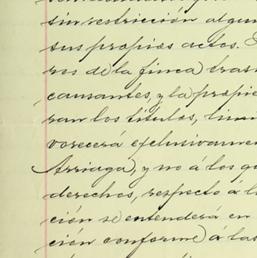 sin restricción algun
sus propios actos.
ros de la finca tras
causantes, y la propie
ran los títulos,
vorecerá esclusivamen
Arriaga), y no á los qu
derechos, respecto á l
ción se entenderá en
ción conforme á las